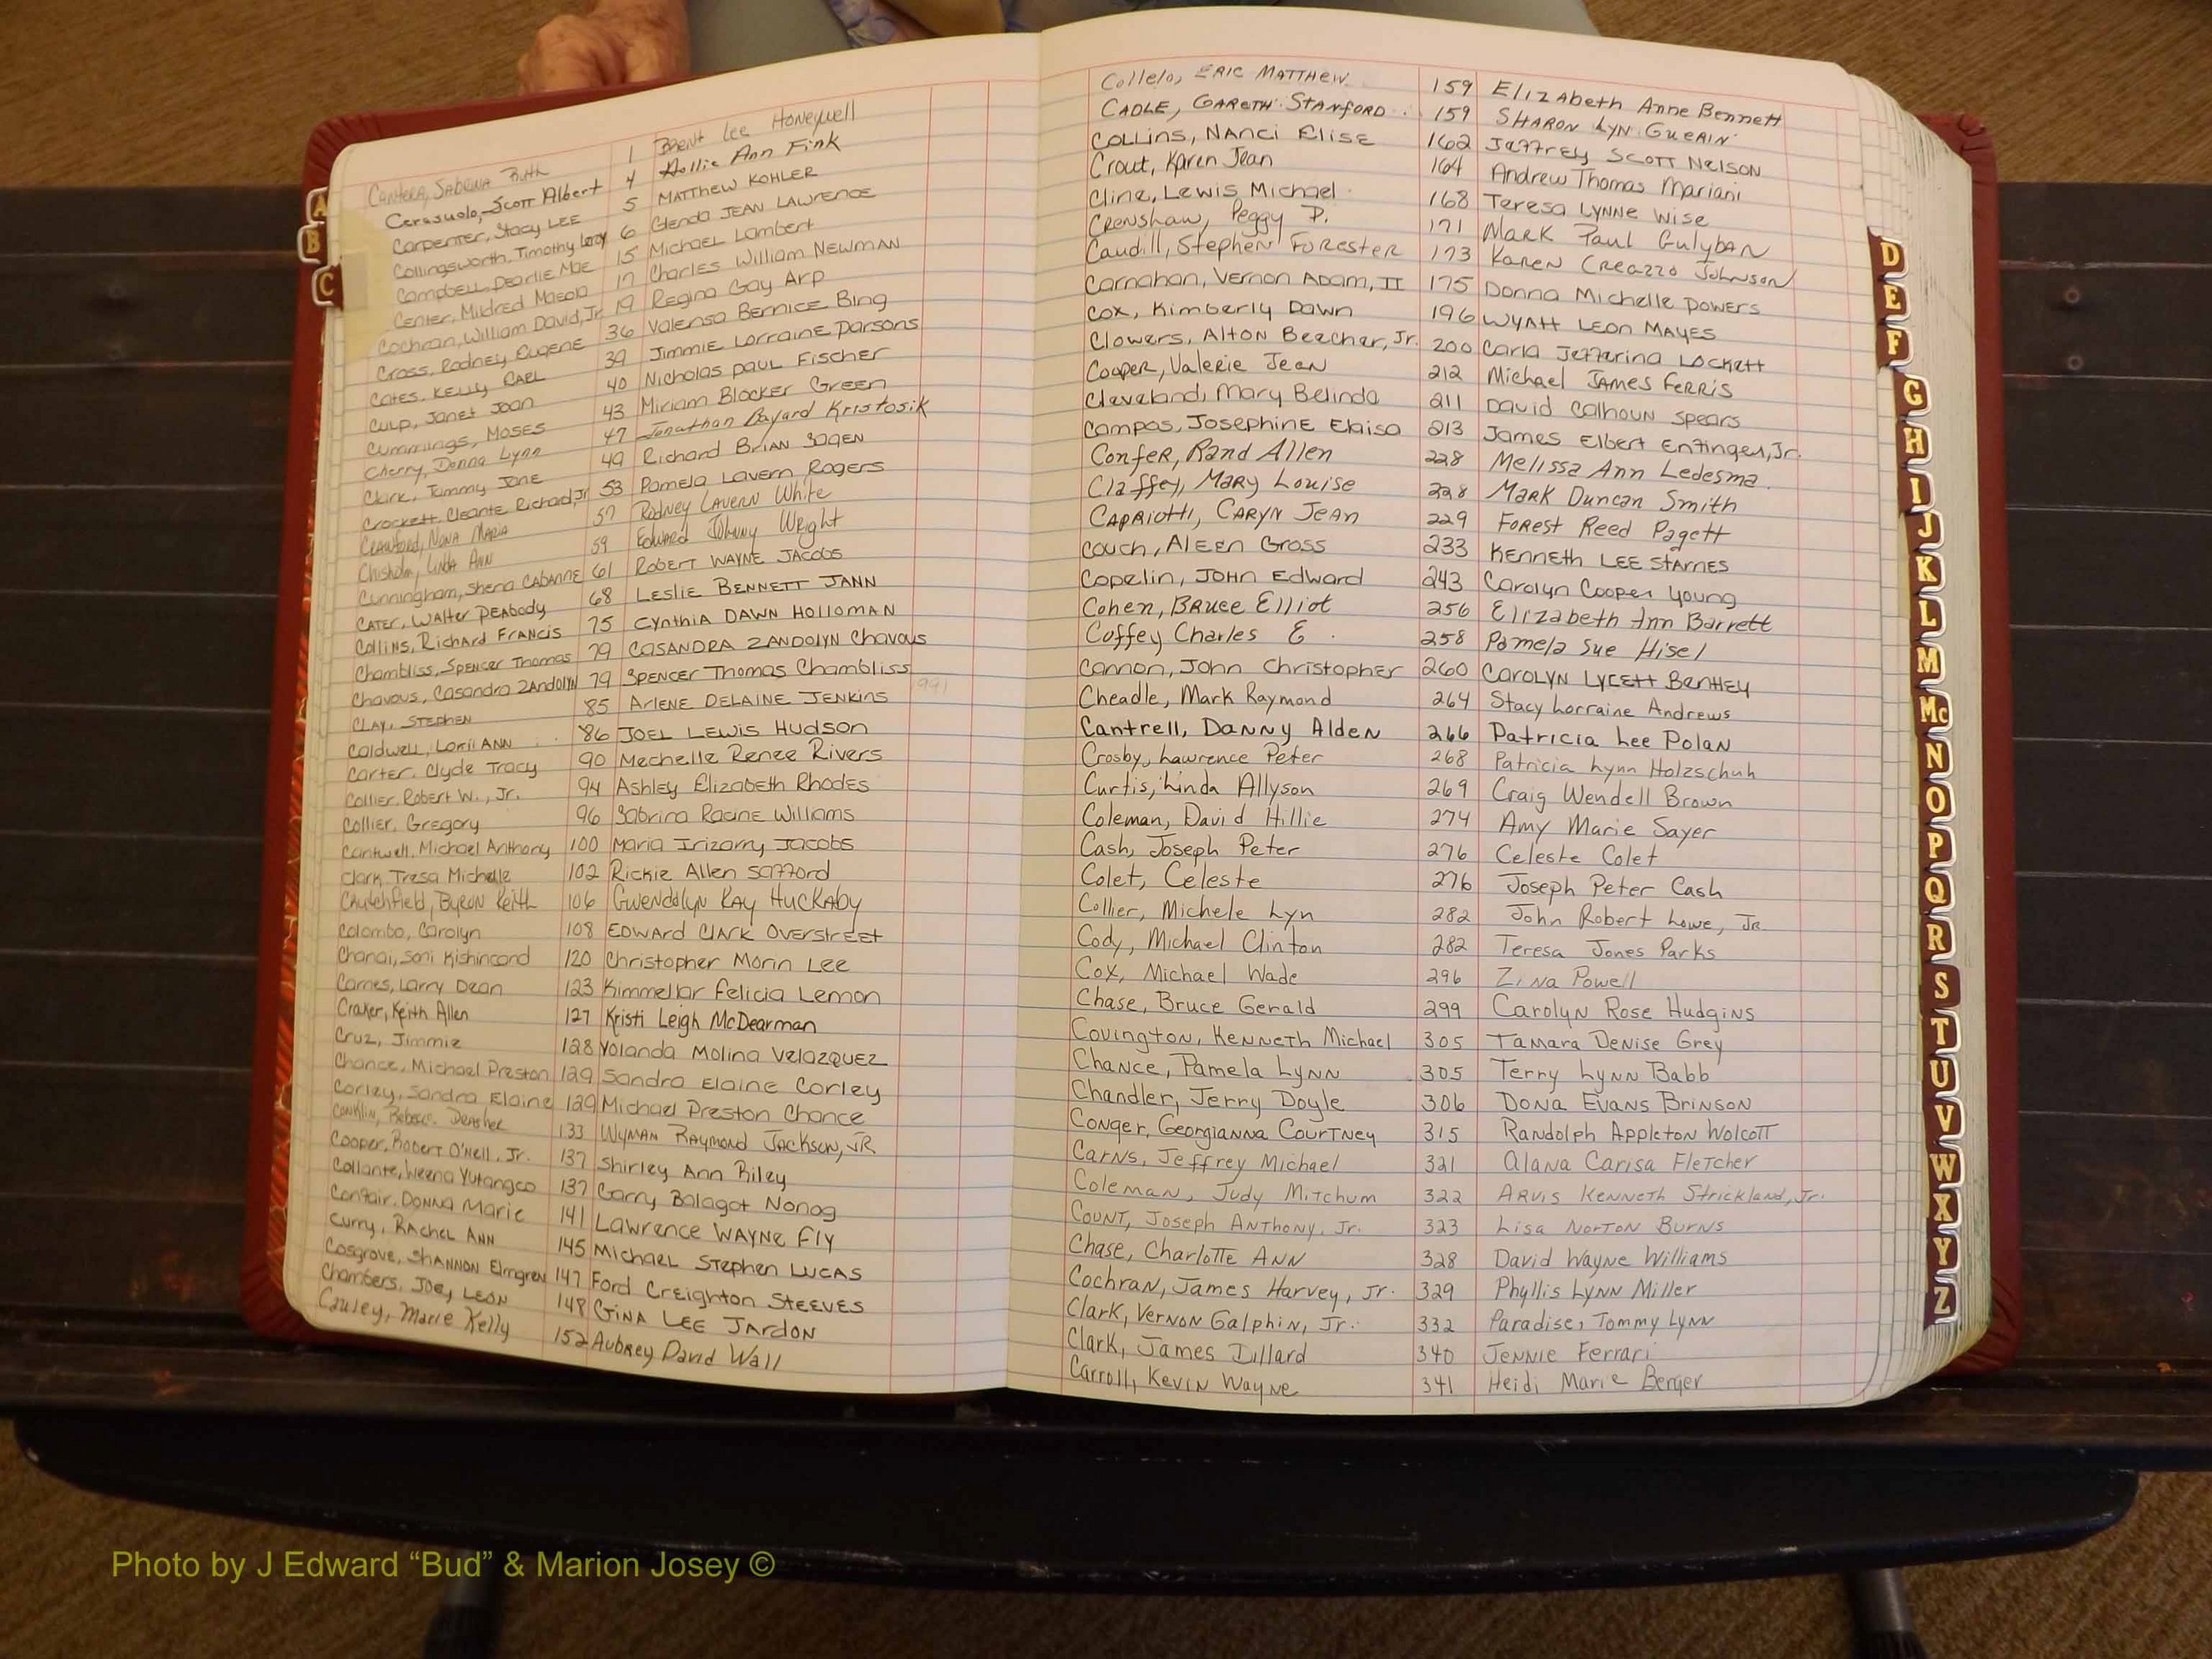 Cantera, Sabrina Ruth 1 Brent Lee Honeywell
Cerasuolo, Scott Albert 4 Hollie Ann Fink
Carpenter, Stacy Lee 5 Matthew Kohler
Collingsworth, Timothy Leroy 6 Glenda Jean Lawrence
Campbell, Pearlie Mae 15 Michael Lambert
Center, Mildred Maeola 17 Charles William Newman
Cochran, William David, Jr 19 Regina Gay Arp
Cross, Rodney Eugene 36 Valensa Bernice Bing
Cates, Kelly Carl 39 Jimmie Lorraine Parsons
Culp, Janet Joan 40 Nicholas Paul Fischer
Cummings, Moses 43 Miriam Blocker Green
Cherry, Donna Lynn 47 Jonathan Bayard Kristosik
Clark, Tammy Jane 49 Richard Brian
Crockett, Cleante Richard, Jr 53 Pamela Lavern Rogers
Crawford, Nona Maria 57 Rodney Lavern White
Chisholm, Linda Ann 59 Edward Johnny Wright
Cunningham, Sheria Cabanne 61 Robert Wayne Jacobs
Cater, Walter Peabody 68 Leslie Bennett Jann
Collins, Richard Francis 75 Cynthia Dawn Holloman
Chambliss, Spencer Thomas 79 Casandra Zandolyn Chavous
Chavous, Casandra Zandolyn 79 Spencer Thomas Chambliss
Clay, Stephen 85 Arlene Delaine Jenkins 1991
Caldwell, Lorii Ann 86 Joel Lewis Hudson
Carter, Clyde Tracy 90 Mechelle Renee Rivers
Collier, Robert W., Jr. 94 Ashley Elizabeth Rhodes
Collier, Gregory 96 Sabrina Racine Williams
Cantwell, Michael Anthony 100 Maria Irizarry Jacobs
Clark, Tresa Michelle 102 Rickie Allen Safford
Crutchfield, Byron Keith 106 Gwendolyn Kay Huckaby
Colombo, Carolyn 108 Edward Clark Overstreet
Chanai, Soni Kishincand 120 Christopher Morin Lee
Carnes, Larry Dean 123 Kimmellar Felicia Lemon
Craker, Keith Allen 127 Kristi Leigh McDearman
Cruz, Jimmie 128 Yolanda Molina Velazquez
Chance, Michael Preston 129 Sandra Elaine Corley
Corley, Sandra Elaine 129 Michael Preston Chance
Conklin, 133 Wyman Raymond Jackson, Jr
Cooper, Robert O'Nell, Jr. 137 Shirley Ann Riley
Collante, Weena Yutangco 137 Garry Balagot Nonog
Confair, Donna Marie 141 Lawrence Wayne Fly
Curry, Rachel Ann 145 Michael Stephen Lucas
Cosgrove, Shannon Elmgren 147 Ford Creighton Steeves
Chambers, Joey Leon 148 Gina Lee Jardon
Cauley, Marie Kelly 152 Aubrey David Wall
Collelo, Eric Matthew 159 Elizabeth Anne Bennett
Cadle, Gareth Stanford 159 Sharon Lyn Guerin
Collins, Nanci Elise 162 Jeffrey Scott Nelson
Crout, Karen Jean 164 Andrew Thomas Mariani
Cline, Lewis Michael 168 Teresa Lynne Wise
Crenshaw, Peggy P. 171 Mark Paul Gulyban
Caudill, Stephen Forester 173 Karen Creazzo Johnson
Carnahan, Vernon Adam, II 175 Donna Michelle Powers
Cox, Kimberly Dawn 196 Wyatt Leon Mayes
Clowers, Alton Beecher, Jr. 200 Carla Jefferina Lockett
Cooper, Valerie Jean 212 Michael James Ferris
Cleveland, Mary Belinda 211 David Calhoun Spears
Campos, Josephine Elaisa 213 James Elbert Entinger, Jr.
Confer, Rand Allen 228 Melissa Ann Ledesma
Claffey, Mary Louise 228 Mark Duncan Smith
Capriotti, Caryn Jean 229 Forest Reed Pagett
Couch, Aleen Gross 233 Kenneth Lee Starnes
Copelin, John Edward 243 Carolyn Cooper Young
Cohen, Bruce Elliot 256 Elizabeth Ann Barrett
Coffey Charles E. 258 Pamela Sue Hisel
Cannon, John Christopher 260 Carolyn Lycett Bentley
Cheadle, Mark Raymond 264 Stacy Lorraine Andrews
Cantrell, Danny Alden 266 Patricia Lee Polan
Crosby, Lawrence Peter 268 Patricia Lynn Holzschuh
Curtis, Linda Allyson 269 Craig Wendell Brown
Coleman, David Hillie 274 Amy Marie Sayer
Cash, Joseph Peter 276 Celeste Colet
Colet, Celeste 276 Joseph Peter Cash
Collier, Michele Lyn 282 John Robert Lowe, Jr.
Cody, Michael Clinton 282 Teresa Jones Parks
Cox, Michael Wade 296 Zina Powell
Chase, Bruce Gerald 299 Carolyn Rose Hudgins
Covington, Kenneth Michael 305 Tamara Denise Grey
Chance, Pamela Lynn 305 Terry Lynn Babb
Chandler, Jerry Doyle 306 Dona Evans Brinson
Conger, Georgianna Courtney 315 Randolph Appleton Wolcott
Carns, Jeffrey Michael 321 Alana Carisa Fletcher
Coleman, Judy Mitchum 322 Arvis Kenneth Strickland, Jr.
Count, Joseph Anthony, Jr. 323 Lisa Norton Burns
Chase, Charlotte Ann 328 David Wayne Williams
Cochran, James Harvey, Jr. 329 Phyllis Lynn Miller
Clark, Vernon Galphin, Jr. 332 Paradise, Tommy Lynn
Clark, James Dillard 340 Jennie Ferrari
Carroll, Kevin Wayne 341 Heidi Marie Berger
A
B
C
D
E
F
G
H
I
J
K
L
M
Mc
N
O
P
Q
R
S
T
U
V
W
X
Y
Z
Photo by J Edward “Bud” & Marion Josey ©